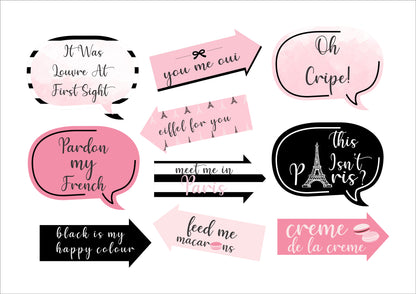 It Was
Louvre At
First Sight
you me oui
Oh
Cripe!
eiffel for you
Pardon
my
French
meet me in
Paris
This
Isn't
P ris?
black is my
happy colour
feed me
macar ns
creme
de la creme